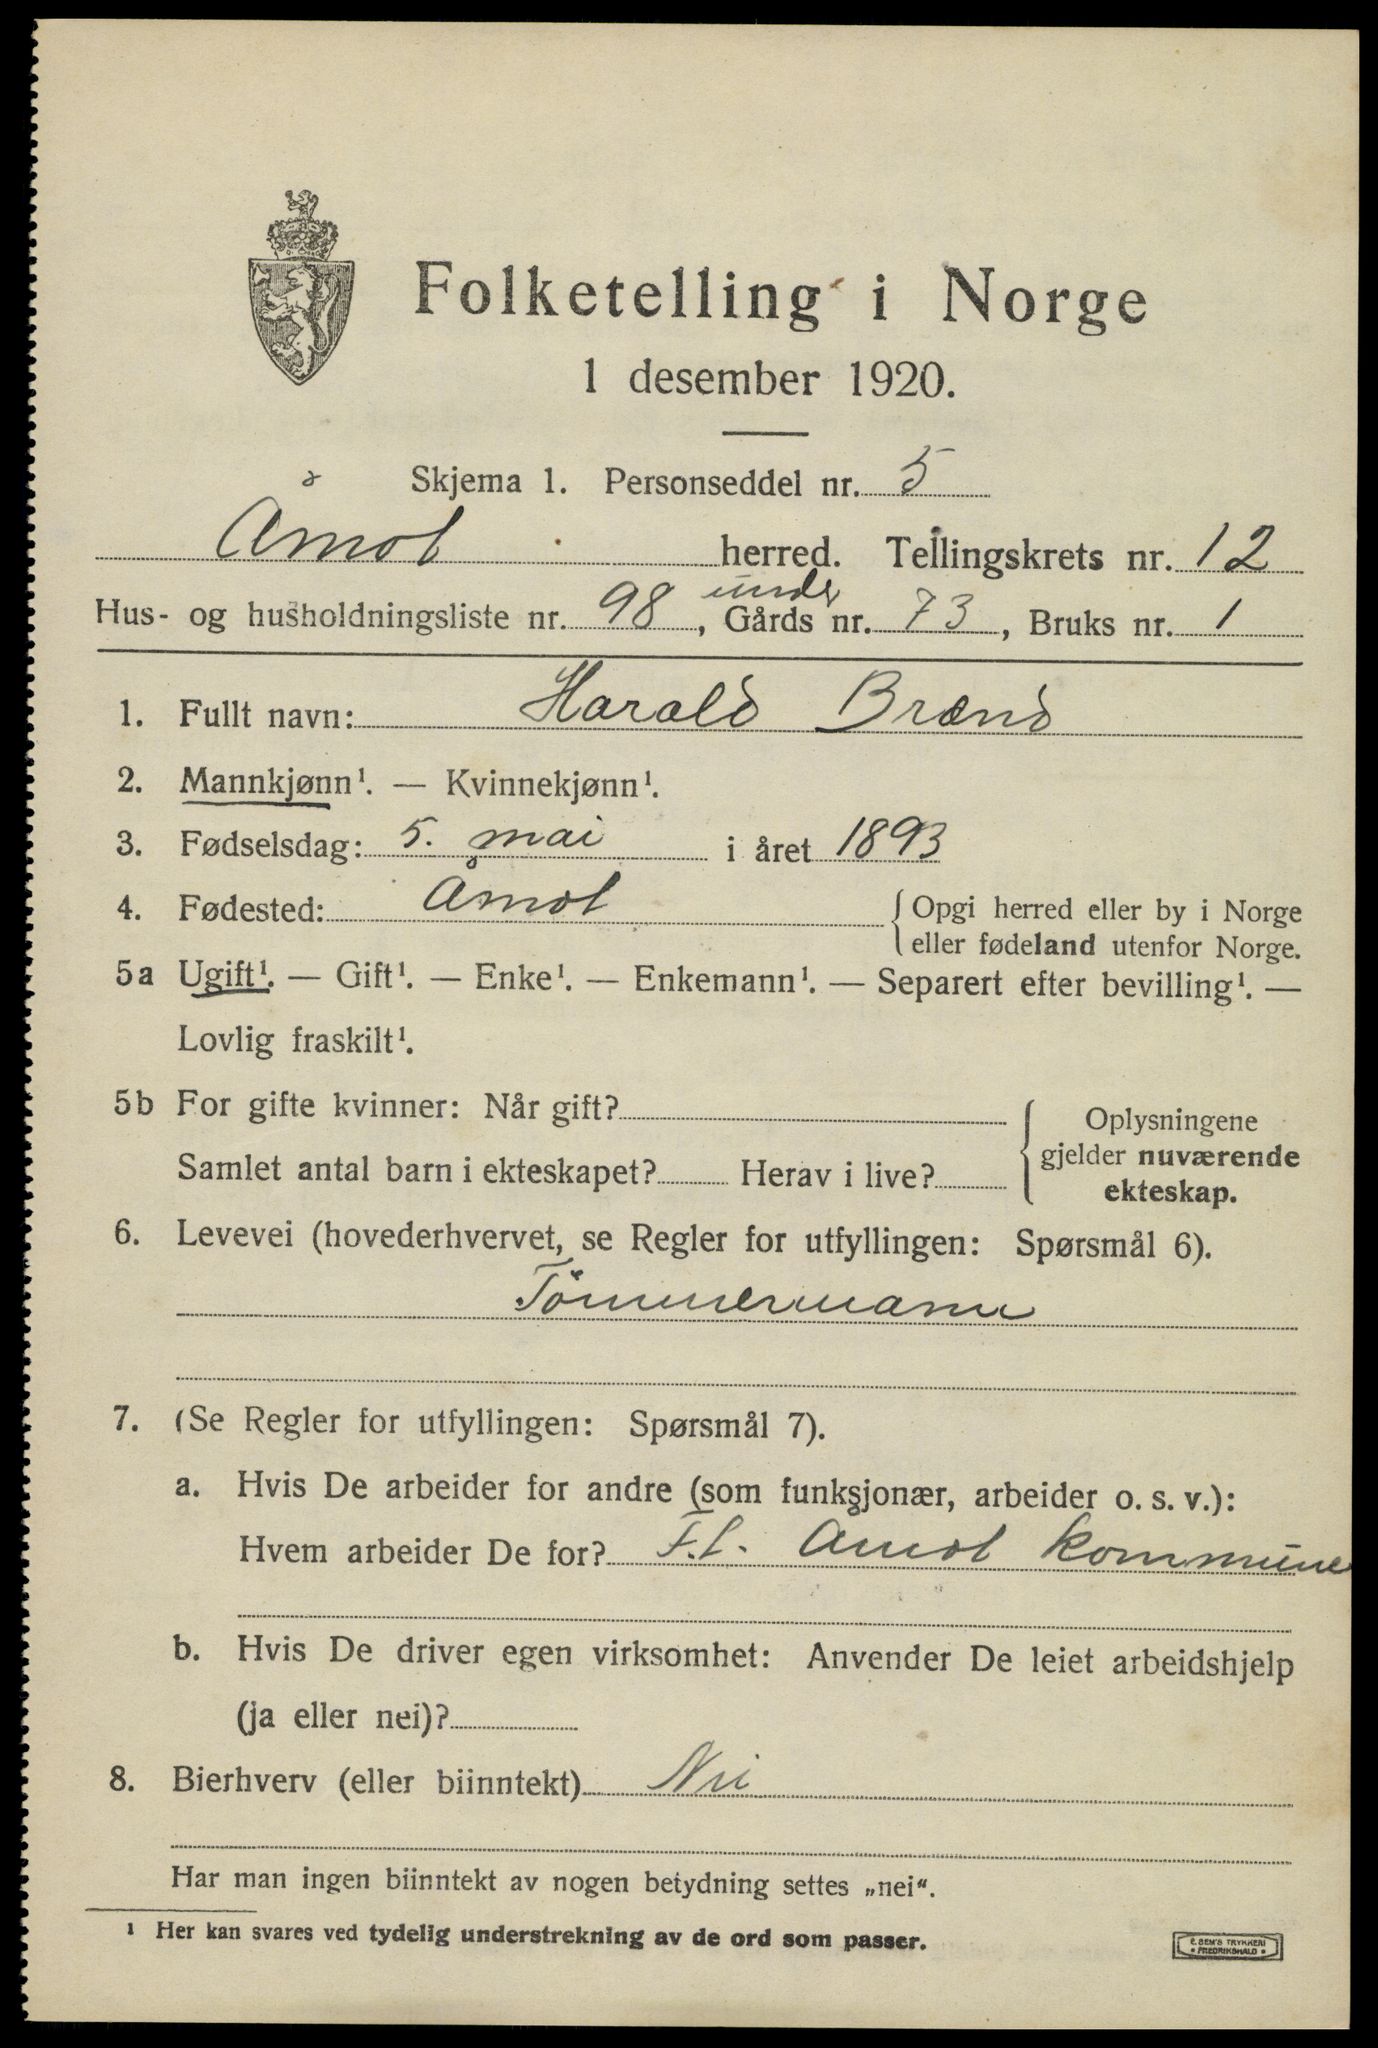 Folketelling i Norge
1 desember 1920.
Skjema 1. Personseddel nr. 5
Åmot herred. Tellingskrets nr. 12
under
Hus- og husholdningsliste nr. 98, Gårds nr. 73, Bruks nr. 1
1. Fullt navn: Harald Brænd
2. Mannkjønn¹. — Kvinnekjønn¹.
3. Fødselsdag: 5. mai i året 1893
4. Fødested: Åmot { Opgi herred eller by i Norge
eller fødeland utenfor Norge.
5a Ugift¹. — Gift¹. — Enke¹. — Enkemann¹. — Separert efter bevilling¹. —
Lovlig fraskilt¹.
5b For gifte kvinner: Når gift? { Oplysningene
gjelder nuværende
Samlet antal barn i ekteskapet? Herav i live? ekteskap.
6. Levevei (hovederhvervet, se Regler for utfyllingen: Spørsmål 6).
Tömmermann
7. (Se Regler for utfyllingen: Spørsmål 7).
a. Hvis De arbeider for andre (som funksjonær, arbeider o. s. v.):
Hvem arbeider De for? F.t. Åmot kommune
b. Hvis De driver egen virksomhet: Anvender De leiet arbeidshjelp
(ja eller nei)?
8. Bierhverv (eller biinntekt) Nei
Har man ingen biinntekt av nogen betydning settes „nei“.
¹ Her kan svares ved tydelig understrekning av de ord som passer.
E. SEM'S TRYKKERI
• FREDRIKSHALD •